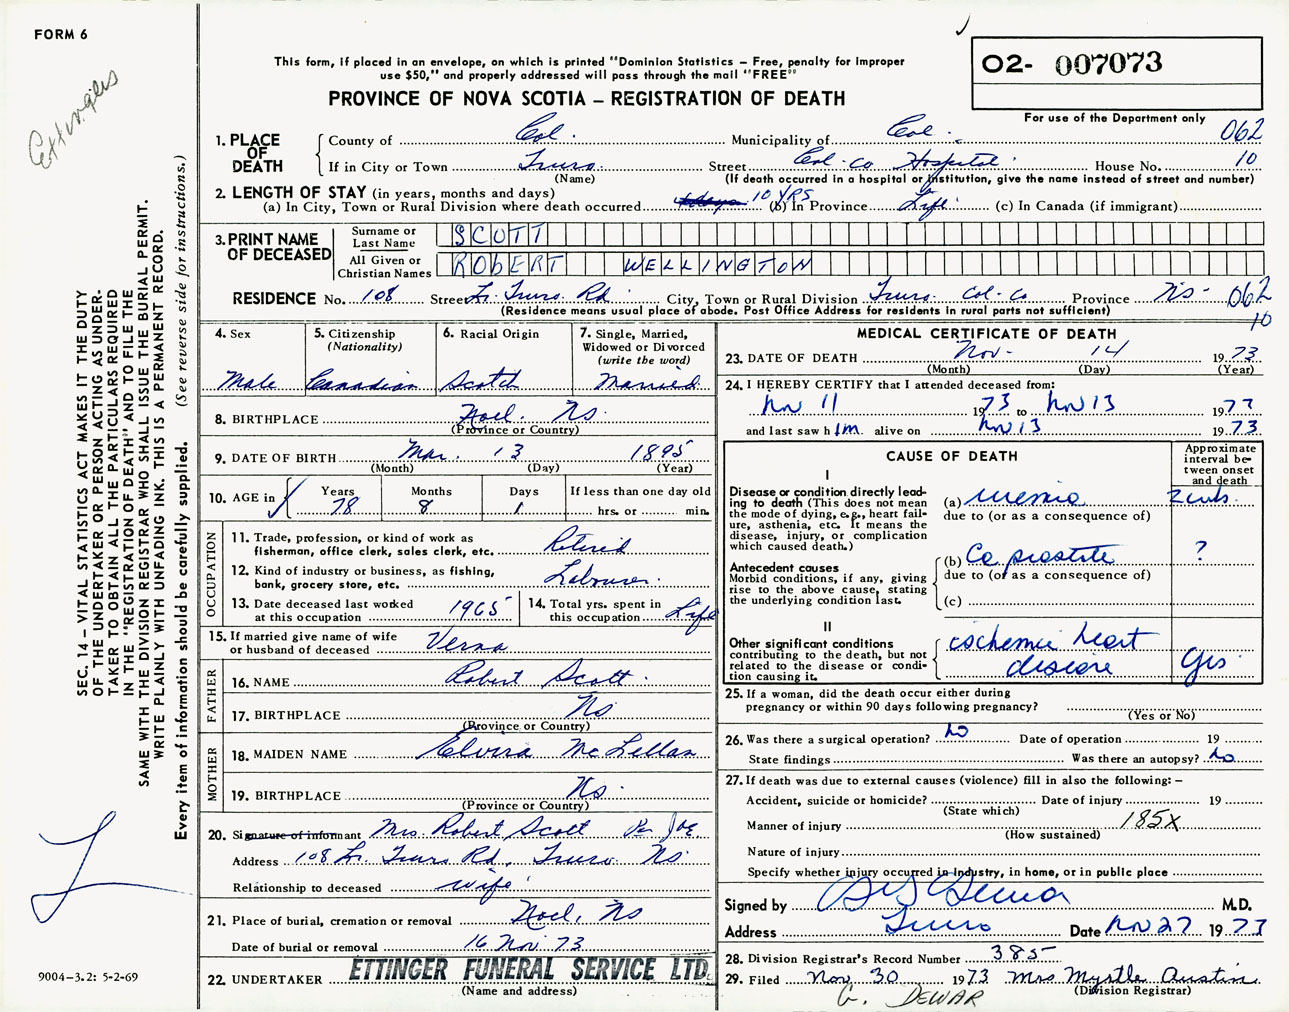 FORM 6
Ettingers
This form, if placed in an envelope, on which is printed "Dominion Statistics – Free, penalty for improper
use $50," and properly addressed will pass through the mail "FREE"
PROVINCE OF NOVA SCOTIA – REGISTRATION OF DEATH
O2- 007073
For use of the Department only
062
10
1. PLACE OF DEATH
County of Col. Municipality of Col.
If in City or Town Truro. Street Col-Co Hospital House No.
(Name) (If death occurred in a hospital or institution, give the name instead of street and number)
2. LENGTH OF STAY (in years, months and days)
(a) In City, Town or Rural Division where death occurred 10 YRS (b) In Province Life (c) In Canada (if immigrant)
3. PRINT NAME OF DECEASED
Surname or Last Name SCOTT
All Given or Christian Names ROBERT WELLINGTON
RESIDENCE No. 108 Street Lr. Truro Rd City, Town or Rural Division Truro Col-Co Province NS- 062
(Residence means usual place of abode. Post Office Address for residents in rural parts not sufficient) 10
4. Sex Male
5. Citizenship (Nationality) Canadian
6. Racial Origin Scotch
7. Single, Married, Widowed or Divorced (write the word) Married
8. BIRTHPLACE Noel. Ns.
(Province or Country)
9. DATE OF BIRTH Mar. 13 1895
(Month) (Day) (Year)
10. AGE in Years 78 Months 8 Days 1 If less than one day old hrs. or min.
OCCUPATION
11. Trade, profession, or kind of work as
fisherman, office clerk, sales clerk, etc. Retired
12. Kind of industry or business, as fishing,
bank, grocery store, etc. Labourer.
13. Date deceased last worked
at this occupation 1965
14. Total yrs. spent in
this occupation Life
15. If married give name of wife
or husband of deceased Verna
FATHER
16. NAME Robert Scott.
17. BIRTHPLACE Ns
(Province or Country)
MOTHER
18. MAIDEN NAME Elvira McLellan
19. BIRTHPLACE Ns.
(Province or Country)
20. Signature of informant Mrs. Robert Scott Per
Address 108 Lr. Truro Rd. Truro. Ns
Relationship to deceased wife
21. Place of burial, cremation or removal Noel, Ns
Date of burial or removal 16 Nov 73
22. UNDERTAKER ETTINGER FUNERAL SERVICE LTD.
(Name and address)
MEDICAL CERTIFICATE OF DEATH
23. DATE OF DEATH Nov- 14 1973
(Month) (Day) (Year)
24. I HEREBY CERTIFY that I attended deceased from:
Nov 11 1973 to Nov 13 1973
and last saw him alive on Nov 13 1973
CAUSE OF DEATH
Approximate interval between onset and death
I
Disease or condition directly lead-
ing to death (This does not mean
the mode of dying, e.g., heart fail-
ure, asthenia, etc. It means the
disease, injury, or complication
which caused death.)
(a) uremia 2 wks.
due to (or as a consequence of)
Antecedent causes
Morbid conditions, if any, giving
rise to the above cause, stating
the underlying condition last.
(b) Ca prostate ?
due to (or as a consequence of)
(c)
II
Other significant conditions
contributing to the death, but not
related to the disease or condi-
tion causing it.
ischemic heart
disease yrs
25. If a woman, did the death occur either during
pregnancy or within 90 days following pregnancy?
(Yes or No)
26. Was there a surgical operation? no Date of operation 19
State findings Was there an autopsy? no
27. If death was due to external causes (violence) fill in also the following: –
Accident, suicide or homicide? Date of injury 19
(State which)
Manner of injury 185X
(How sustained)
Nature of injury
Specify whether injury occurred in industry, in home, or in public place
Signed by M.D.
Address Truro Date Nov 27 1973
28. Division Registrar's Record Number 385
29. Filed Nov. 30 1973 Mrs Myrtle Austin
(Division Registrar)
G. DEWAR
SEC. 14 – VITAL STATISTICS ACT MAKES IT THE DUTY
OF THE UNDERTAKER OR PERSON ACTING AS UNDER-
TAKER TO OBTAIN ALL THE PARTICULARS REQUIRED
IN THE "REGISTRATION OF DEATH" AND TO FILE THE
SAME WITH THE DIVISION REGISTRAR WHO SHALL ISSUE THE BURIAL PERMIT.
WRITE PLAINLY WITH UNFADING INK. THIS IS A PERMANENT RECORD.
Every item of information should be carefully supplied. (See reverse side for instructions.)
9004–3.2: 5-2-69